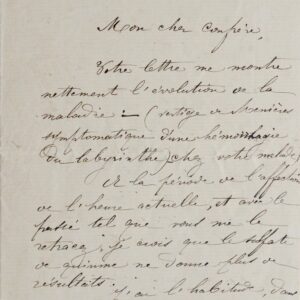 Mon cher confrère,
Votre lettre me montre
nettement l'évolution de la
maladie :- (vertige de Menière
symptomatique d'une hémorrhagie
du labyrinthe) chez votre malade,
A la période de l'affection
de l'heure actuelle, et avec le
passé tel que vous me le
retracez, je crois que le sulfate
de quinine ne donne plus de
résultats.
J'ai l'habitude, dans